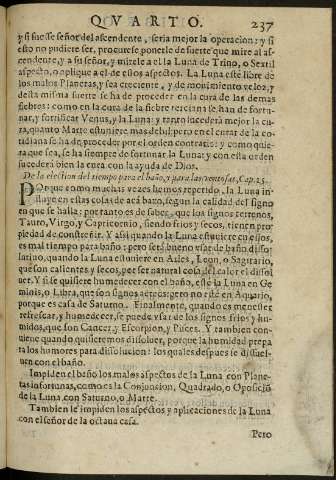 QVARTO. 237
y si fuesse señor del ascendente, seria mejor la operacion: y si
esto no pudiere ser, procurese ponerle de suerte que mire al as-
cendente, y a su señor, y mirele a el la Luna de Trino, o Sextil
aspecto, o aplique a el de essos aspectos. La Luna esté libre de
los malos Planetas, y sea creciente, y de mouimiento veloz, y
desta misma suerte se ha de proceder en la cura de las demas
fiebres: como en la cura de la fiebre terciana se han de fortu-
nar, y fortificar Venus, y la Luna: y tanto sucederá mejor la cu-
ra, quanto Marte estuuiere mas debil: pero en el curar de la co-
tidiana se ha de proceder por el orden contrario: y como quie-
ra que sea, se ha siempre de fortunar la Luna: y con esta orden
sucederá bien la cura con la ayuda de Dios.
De la election del tiempo para el baño, y para las ventosas, Cap. 25.
POrque como muchas vezes hemos repetido, la Luna in-
fluye en estas cosas de acá baxo, segun la calidad del signo
en que se halla: por tanto es de saber, que los signos terrenos,
Tauro, Virgo, y Capricornio, siendo frios y secos, tienen pro-
piedad de constreñir. Y assi quando la Luna estuuiere en ellos,
es mal tiempo para baño: pero será bueno vsar de baño disso-
lutiuo, quando la Luna estuuiere en Aries, Leon, o Sagitario,
que son calientes y secos, por ser natural cosa del calor el dissol
uer. Y si se quisiere humedecer con el baño, esté la Luna en Ge
minis, o Libra, que son signos aereos: pero no esté en Aquario,
porque es casa de Saturno. Finalmente, quando es menester
refrescar, y humedecer, se puede vsar de los signos frios y hu-
midos, que son Cancer, y Escorpion, y Pisces. Y tambien con-
uiene quando quisieremos dissoluer, porque la humidad prepa
ra los humores para dissolucion: los quales despues se dissuel-
uen con el baño.
Impiden el baño los malos aspectos de la Luna con Plane-
tas infortunas, como es la Conjuncion, Quadrado, o Oposiciõ
de la Luna con Saturno, o Marte.
Tambien le impiden los aspectos y aplicaciones de la Luna
con el señor de la octaua casa.
Pero